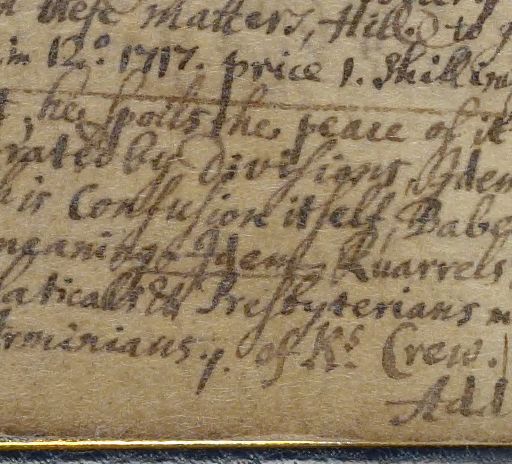 these Matters, Hill. to
in 12.º 1717. price 1. Shilling
he spoils the peace of it
rated by divisions. Idem
his Confusion itself, Babe
meaning. Idem. Quarrels
aticals & Presbyterians
Arminians. p. of Ks. Crew.
Ad